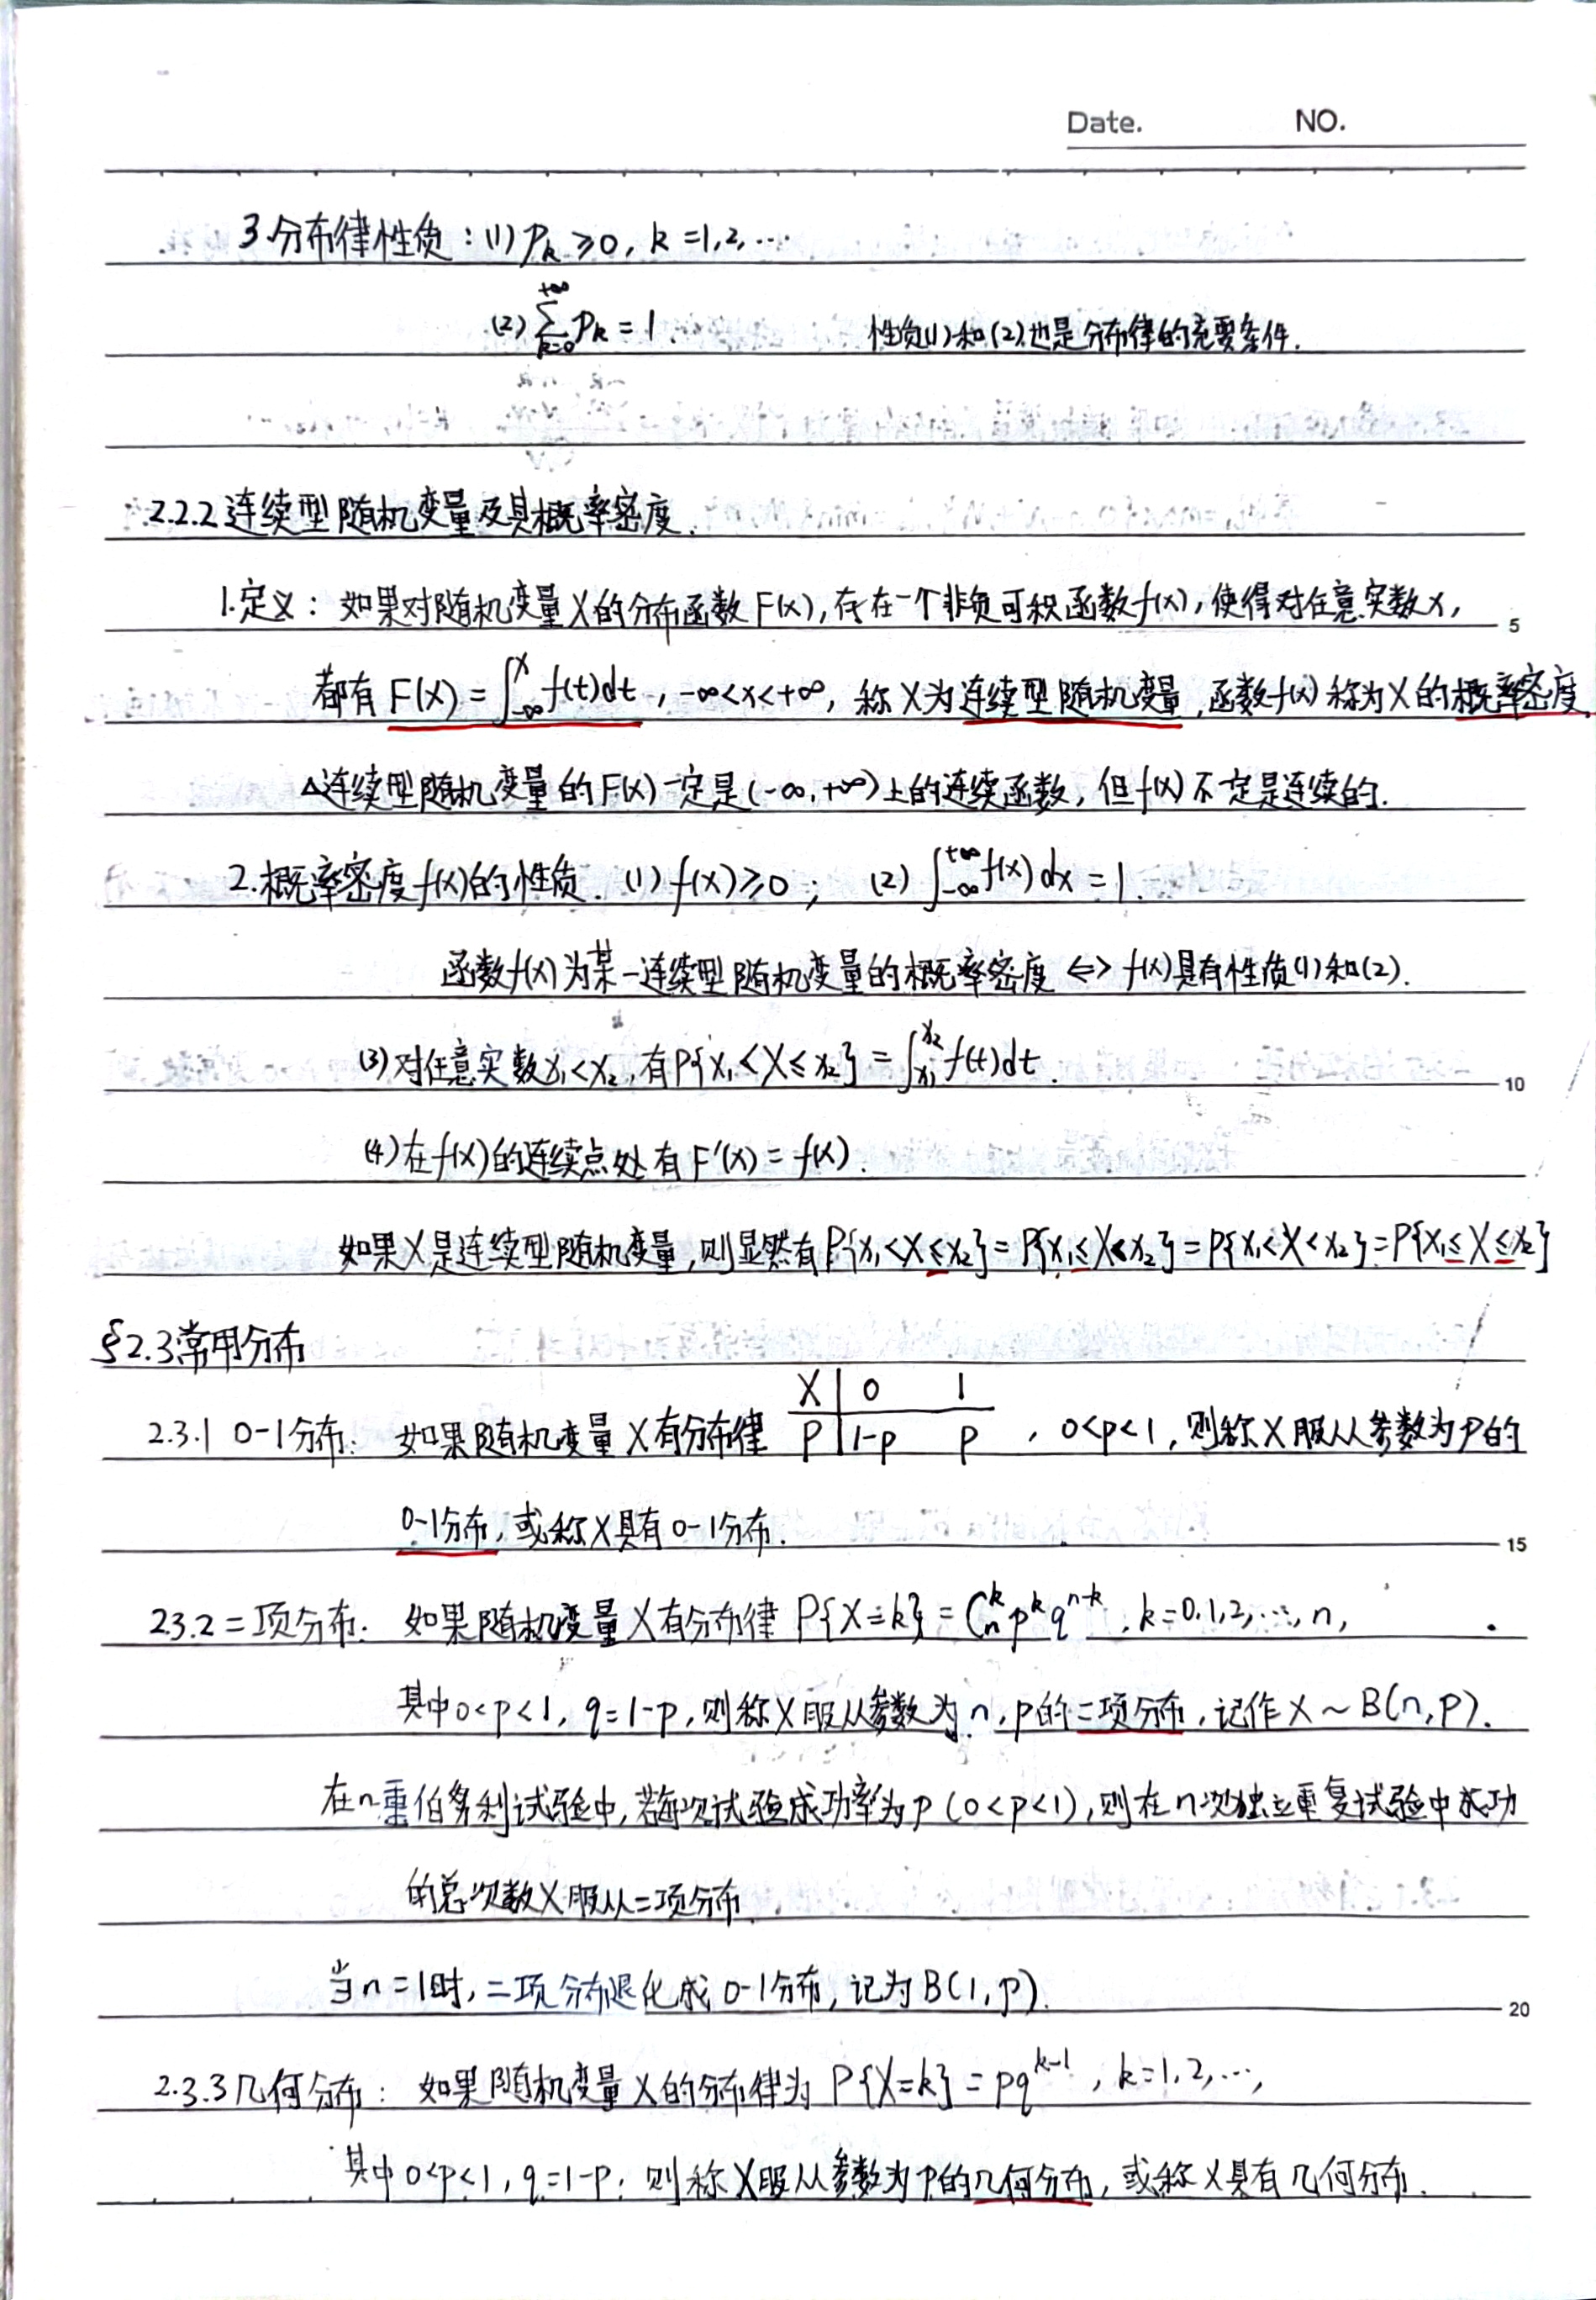 Date. NO.
3.分布律性质：(1) Pk ≥ 0, k = 1,2,…
(2) ∑_{k=0}^{+∞} Pk = 1. 性质(1)和(2)也是分布律的充要条件.
2.2.2 连续型随机变量及其概率密度.
1.定义：如果对随机变量X的分布函数F(x),存在一个非负可积函数f(x),使得对任意实数x,
5
都有 F(x) = ∫_{-∞}^{x} f(t)dt , -∞<x<+∞, 称X为连续型随机变量,函数f(x)称为X的概率密度.
△连续型随机变量的F(x)一定是(-∞,+∞)上的连续函数,但f(x)不一定是连续的.
2.概率密度f(x)的性质. (1) f(x)≥0; (2) ∫_{-∞}^{+∞} f(x)dx = 1.
函数f(x)为某一连续型随机变量的概率密度 <=> f(x)具有性质(1)和(2).
(3)对任意实数x₁<x₂,有P{x₁<X≤x₂} = ∫_{x₁}^{x₂} f(t)dt.
10
(4)在f(x)的连续点处有F'(x) = f(x).
如果X是连续型随机变量,则显然有P{x₁<X≤x₂}=P{x₁≤X<x₂}=P{x₁<X<x₂}=P{x₁≤X≤x₂}
§2.3常用分布
X | 0 1
2.3.1 0-1分布: 如果随机变量X有分布律 P | 1-p p , 0<p<1, 则称X服从参数为p的
0-1分布,或称X具有0-1分布.
15
2.3.2 二项分布: 如果随机变量X有分布律 P{X=k} = C_n^k p^k q^{n-k}, k=0,1,2,…,n,
其中0<p<1, q=1-p,则称X服从参数为n,p的二项分布,记作X~B(n,p).
在n重伯努利试验中,若每次试验成功率为p(0<p<1),则在n次独立重复试验中成功
的总次数X服从二项分布.
当n=1时,二项分布退化成0-1分布,记为B(1,p).
20
2.3.3几何分布: 如果随机变量X的分布律为 P{X=k} = pq^{k-1}, k=1,2,…,
其中0<p<1, q=1-p,则称X服从参数为p的几何分布,或称X具有几何分布.